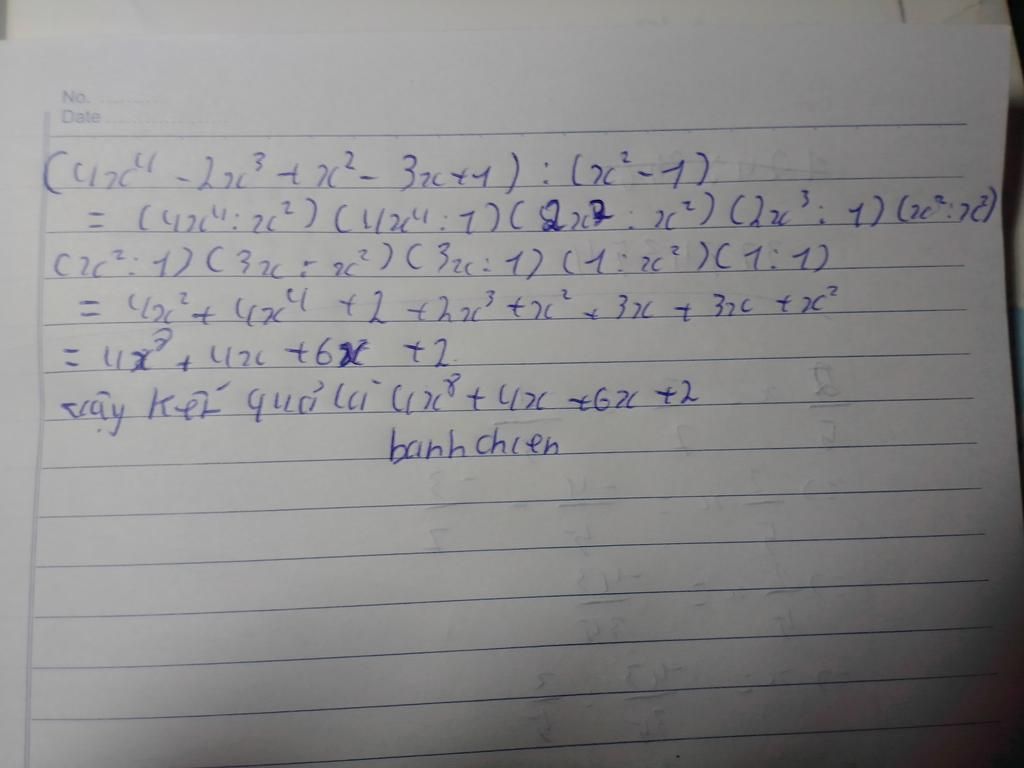 No. ............
Date ....................
(4x⁴ - 2x³ + x² - 3x + 1) : (x² - 1)
= (4x⁴ : x²) (4x⁴ : 1) (2x² : x²) (2x³ : 1) (x² : x²)
(x² : 1) (3x : x²) (3x : 1) (1 : x²) (1 : 1)
= 4x² + 4x⁴ + 2 + 2x³ + x² + 3x + 3x + x²
= 4x⁸ + 4x + 6x + 2
vậy kết quả là 4x⁸ + 4x + 6x + 2
banhchien